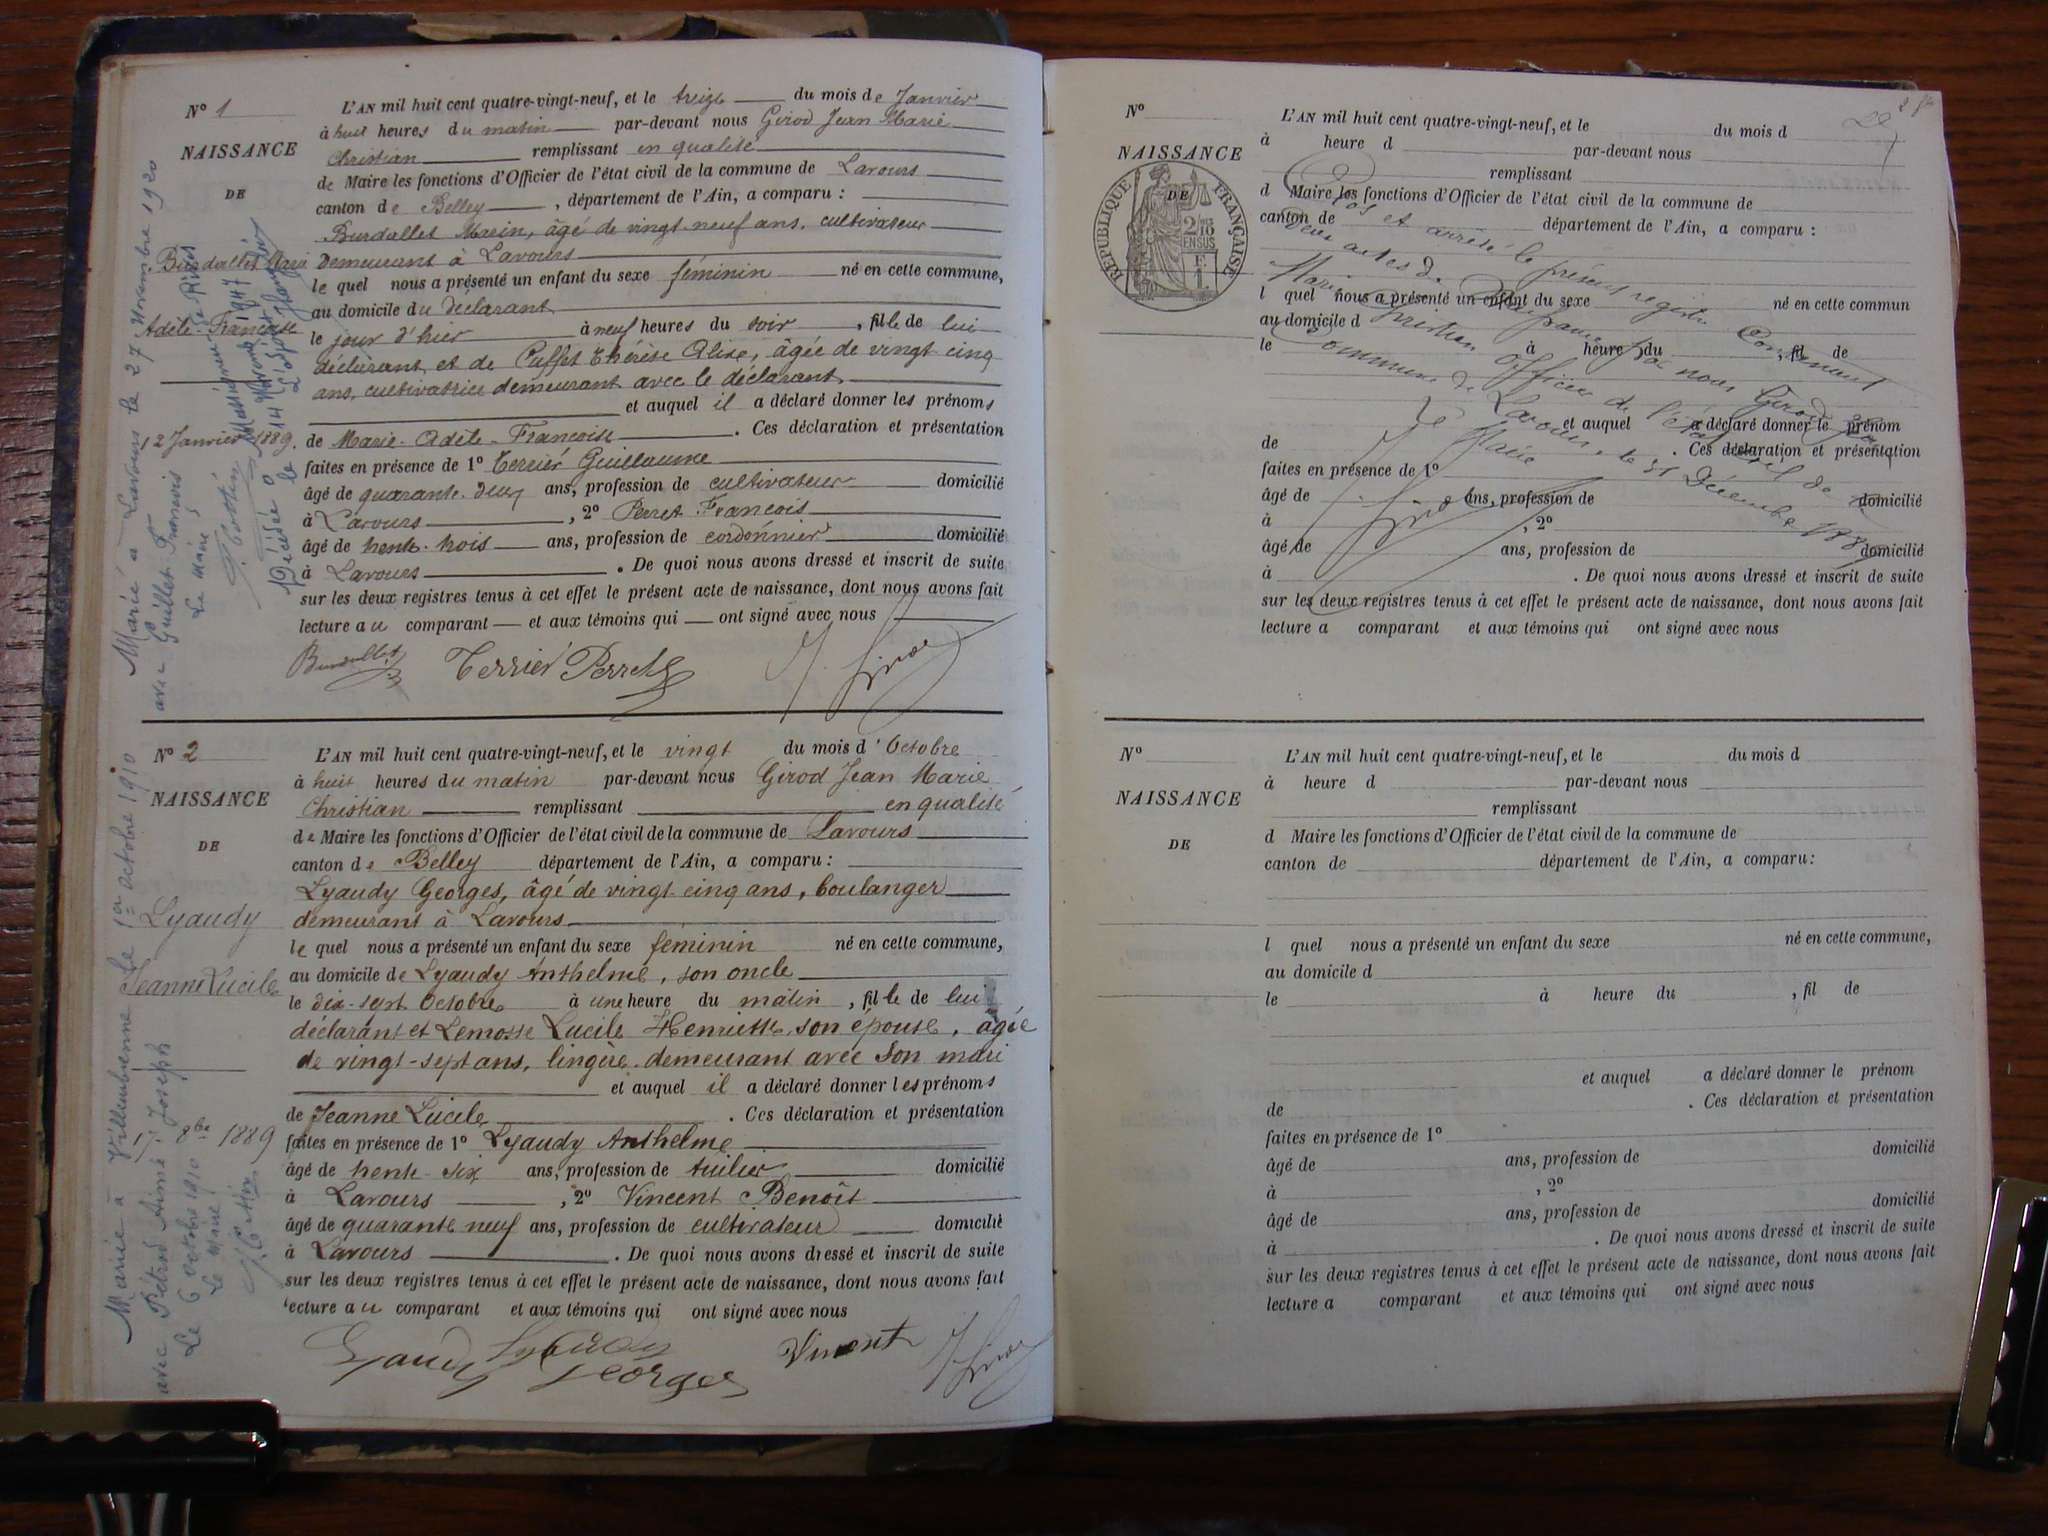 N° 1
NAISSANCE
DE
Burdallet Marie
Adèle-Françoise
12 Janvier 1889.
Marié à Lavours le 27 Novembre 1920
avec Guillet Francis
Le Maire
Décédée à
le 14
1947
L'AN mil huit cent quatre-vingt-neuf, et le treize du mois de Janvier
à huit heures du matin par-devant nous Girod Jean Marie
Christian remplissant en qualité
de Maire les fonctions d'Officier de l'état civil de la commune de Lavours
canton de Belley, département de l'Ain, a comparu :
Burdallet Marin, âgé de vingt-neuf ans, cultivateur
demeurant à Lavours
le quel nous a présenté un enfant du sexe féminin né en cette commune,
au domicile du déclarant
le jour d'hier à neuf heures du soir, fille de lui
déclarant et de Cuffet Thérèse Alise, âgée de vingt cinq
ans, cultivatrice demeurant avec le déclarant
et auquel il a déclaré donner les prénoms
de Marie-Adèle-Françoise. Ces déclaration et présentation
faites en présence de 1° Terrier Guillaume
âgé de quarante-deux ans, profession de cultivateur domicilié
à Lavours, 2° Perret François
âgé de trente-trois ans, profession de cordonnier domicilié
à Lavours. De quoi nous avons dressé et inscrit de suite
sur les deux registres tenus à cet effet le présent acte de naissance, dont nous avons fait
lecture au comparant et aux témoins qui ont signé avec nous
Burdallet Terrier Perret J. Girod
N° 2
NAISSANCE
DE
Lyaudy
Jeanne Lucile
17 8bre 1889
Marié à Villeurbanne le 1er octobre 1910
avec Pétrod Aimé Joseph
Le 6 octobre 1910
Le Maire
L'AN mil huit cent quatre-vingt-neuf, et le vingt du mois d'Octobre
à huit heures du matin par-devant nous Girod Jean Marie
Christian remplissant en qualité
de Maire les fonctions d'Officier de l'état civil de la commune de Lavours
canton de Belley département de l'Ain, a comparu :
Lyaudy Georges, âgé de vingt cinq ans, boulanger
demeurant à Lavours
le quel nous a présenté un enfant du sexe féminin né en cette commune,
au domicile de Lyaudy Anthelme, son oncle
le dix-sept Octobre à une heure du matin, fille de lui
déclarant et Lemosse Lucile Henriette, son épouse, âgée
de vingt-sept ans, lingère demeurant avec son mari
et auquel il a déclaré donner les prénoms
de Jeanne Lucile. Ces déclaration et présentation
faites en présence de 1° Lyaudy Anthelme
âgé de trente-six ans, profession de tuilier domicilié
à Lavours, 2° Vincent Benoît
âgé de quarante neuf ans, profession de cultivateur domicilié
à Lavours. De quoi nous avons dressé et inscrit de suite
sur les deux registres tenus à cet effet le présent acte de naissance, dont nous avons fait
lecture au comparant et aux témoins qui ont signé avec nous
Lyaudy Lyaudy Georges Vincent J. Girod
N°
NAISSANCE
DE
RÉPUBLIQUE FRANÇAISE
2/10 EN SUS
F 1
L'AN mil huit cent quatre-vingt-neuf, et le du mois d
à heure d par-devant nous
remplissant
d Maire les fonctions d'Officier de l'état civil de la commune de
canton de département de l'Ain, a comparu :
l quel nous a présenté un enfant du sexe né en cette commun
au domicile d
le à heure du , fil de
et auquel a déclaré donner le prénom
de . Ces déclaration et présentation
faites en présence de 1°
âgé de ans, profession de domicilié
à , 2°
âgé de ans, profession de domicilié
à . De quoi nous avons dressé et inscrit de suite
sur les deux registres tenus à cet effet le présent acte de naissance, dont nous avons fait
lecture a comparant et aux témoins qui ont signé avec nous
Clos et arrêté le présent registre Contenant
Deux actes de Naissance par nous Girod Jean
Marie Christian Officier de l'état civil de la
Commune de Lavours, le 31 Décembre 1889
Le Maire
J. Girod
N°
NAISSANCE
DE
L'AN mil huit cent quatre-vingt-neuf, et le du mois d
à heure d par-devant nous
remplissant
d Maire les fonctions d'Officier de l'état civil de la commune de
canton de département de l'Ain, a comparu :
l quel nous a présenté un enfant du sexe né en cette commune,
au domicile d
le à heure du , fil de
et auquel a déclaré donner le prénom
de . Ces déclaration et présentation
faites en présence de 1°
âgé de ans, profession de domicilié
à , 2°
âgé de ans, profession de domicilié
à . De quoi nous avons dressé et inscrit de suite
sur les deux registres tenus à cet effet le présent acte de naissance, dont nous avons fait
lecture a comparant et aux témoins qui ont signé avec nous